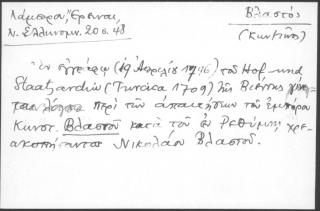 Λάμπρου, Ἔρευναι,
Ν. Ἑλληνομν. 20 σ. 48
Βλαστὸς
(Κων/τῖνος)
Ἐν ἐγγράφῳ (19 Ἀπριλίου 1746) τοῦ Hof- und
Staatsarchiv (Turcica 1709) τῆς Βιέννης γίνε-
ται λόγος περὶ τῶν ἀπαιτήσεων τοῦ ἐμπόρου
Κωνστ. Βλαστοῦ κατὰ τοῦ ἐν Ρεθύμνῃ χρε-
ωκοπήσαντος Νικολάου Βλαστοῦ.